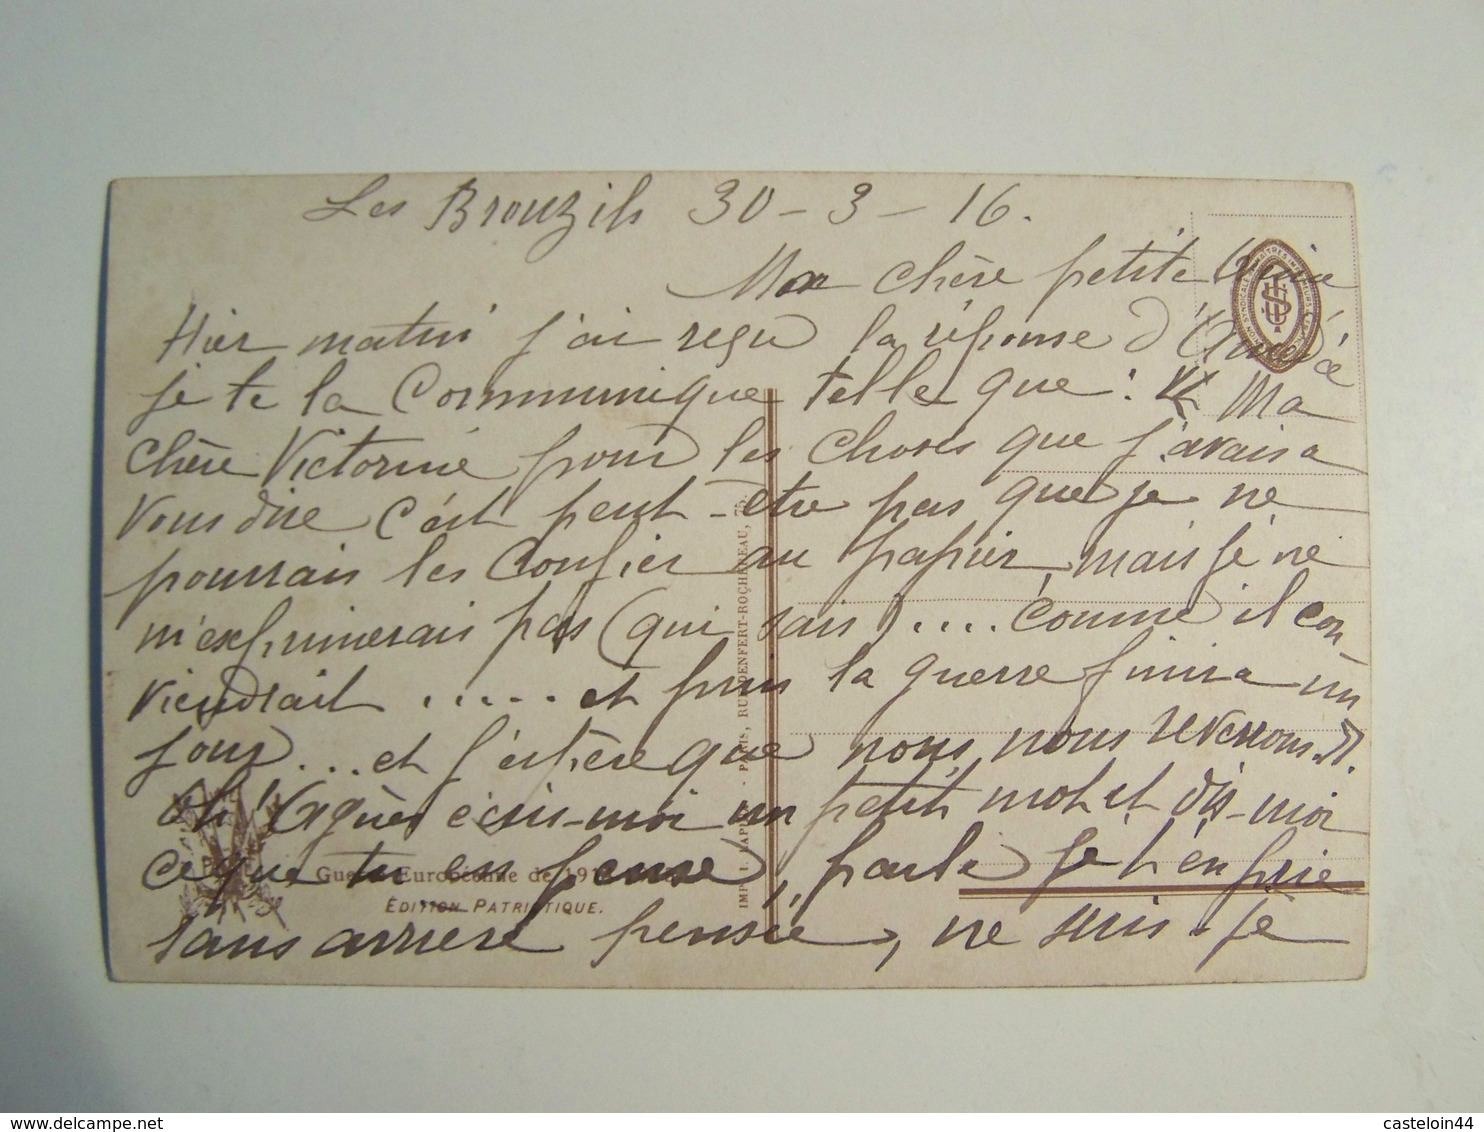 Les Brouzils 30-3-16.
Mon chère petite
Hier matin j'ai reçu la réponse d'Aimée
je te la communique telle que : « Ma
chère Victorine pour les choses que j'avais a
vous dire c'ést peut-etre pas que je ne
pourrais les confier au papier, mais je ne
m'exprimerais pas (qui sais) .... comme il con
viendrait ..... et puis la guerre finira un
jour ... et j'éspère que nous nous reverrons. »
écris-moi un petit mot et dis-moi
ce que tu en pense, parle je t'en prie
sans arriere pensée, ne suis-je
UNION SYNDICALE MAITRES IMPRIMEURS
IMP. I. LAPINA - PARIS, RUE DENFERT-ROCHEREAU, 75.
Guerre Européenne de 191
ÉDITION PATRIOTIQUE.
casteloin44